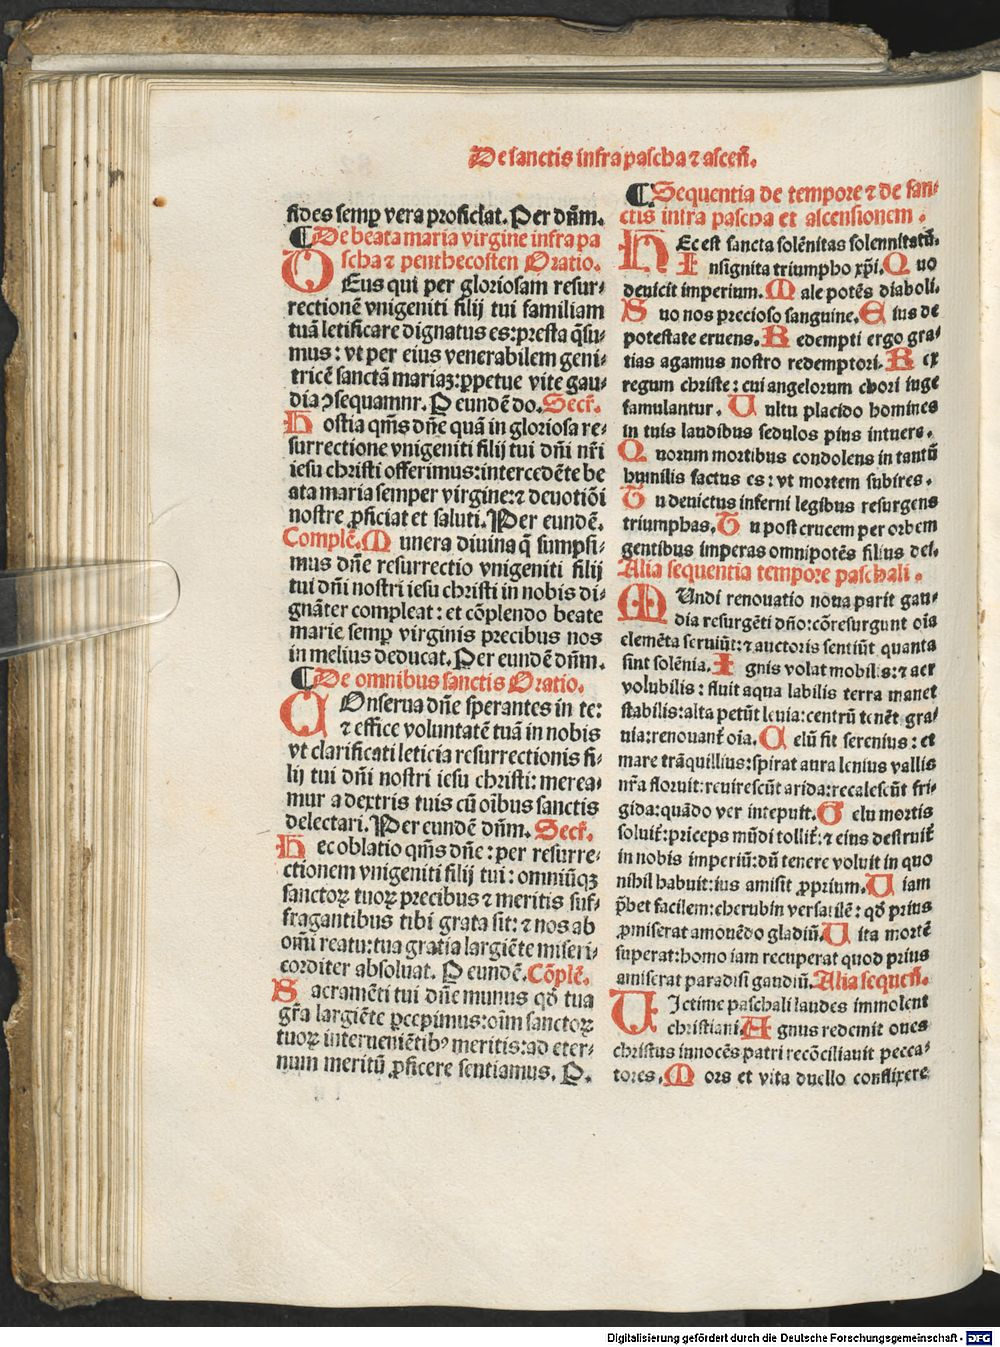 De sanctis infra pascha ⁊ asceñ.
fides semꝑ vera proficiat. Per dñm.
¶De beata maria virgine infra pa
scha ⁊ penthecosten Oratio.
DEus qui per gloriosam resur⸗
rectionē vnigeniti filij tui familiam
tuā letificare dignatus es: presta q̄su⸗
mus: vt per eius venerabilem geni⸗
tricē sanctā mariaꝫ: ꝑpetue vite gau⸗
dia ꝯsequamnr. P eundē do. Secr̃.
Hostia qm̄s dñe quā in gloriosa re⸗
surrectione vnigeniti filij tui dñi nr̄i
iesu christi offerimus: intercedēte be
ata maria semper virgine: ⁊ deuotiōi
nostre ꝓficiat et saluti. Per eundē.
Complē. Munera diuina q̄ sumpsi⸗
mus dñe resurrectio vnigeniti filij
tui dñi nostri iesu christi in nobis di⸗
gnāter compleat: et cōplendo beate
marie semꝑ virginis precibus nos
in melius deducat. Per eundē dñm.
¶De omnibus sanctis Oratio.
COnserua dñe sperantes in te:
⁊ effice voluntatē tuā in nobis
vt clarificati leticia resurrectionis fi⸗
lij tui dñi nostri iesu christi: merea⸗
mur a dextris tuis cū oībus sanctis
delectari. Per eundē dñm. Secr̃.
Hec oblatio qm̄s dñe: per resurre⸗
ctionem vnigeniti filij tui: omniūqꝫ
sanctoꝝ tuoꝝ precibus ⁊ meritis suf⸗
fragantibus tibi grata sit: ⁊ nos ab
om̄i reatu: tua gratia largiēte miseri⸗
corditer absoluat. P eundē. Cōplē.
Sacramēti tui dñe munus qđ tua
gr̄a largiēte ꝑcepimus: oīm sanctoꝝ
tuoꝝ interueniētibꝰ meritis: ad eter⸗
num meritū ꝓficere sentiamus. P.
¶Sequentia de tempore ⁊ de san⸗
ctis infra pascha et ascensionem.
HEc est sancta solēnitas solennitatū.
Insignita triumpho xp̄i. Quo
deuicit imperium. Male potēs diaboli.
Suo nos precioso sanguine. Eius de
potestate eruens. Redempti ergo gra⸗
tias agamus nostro redemptori. Rex
regum christe: cui angelorum chori iuge
famulantur. Vultu placido homines
in tuis laudibus sedulos pius intuere.
Quorum mortibus condolens in tantū
humilis factus es: vt mortem subires.
Tu deuictus inferni legibus resurgens
triumphas. Tu post crucem per orbem
gentibus imperas omnipotēs filius dei.
Alia sequentia tempore paschali.
MUndi renouatio noua parit gau⸗
dia resurgēti dño: cōresurgunt oīa
elemēta seruiūt: ⁊ auctoris sentiūt quanta
sint solēnia. Ignis volat mobilis: ⁊ aer
volubilis: fluit aqua labilis terra manet
stabilis: alta petūt leuia: centrū tenēt gra⸗
uia: renouant̄ oīa. Celū fit serenius: et
mare trāquillius: spirat aura lenius vallis
nr̄a floruit: reuirescūt arida: recalescūt fri⸗
gida: quādo ver intepuit. Gelu mortis
soluit̄: princeps mūdi tollit̄: ⁊ eius destruit̄
in nobis imperiū: dū tenere voluit in quo
nihil habuit: ius amisit ꝓprium. Viam
p̄bet facilem: cherubin versatilē: qđ prius
ꝓmiserat amouēdo gladiū. Vita mortē
superat: homo iam recuperat quod prius
amiserat paradisi gaudiū. Alia sequeñ.
VIctime paschali laudes immolent
christiani. Agnus redemit oues
christus innocēs patri recōciliauit pecca⸗
tores. Mors et vita duello conflixere
Digitalisierung gefördert durch die Deutsche Forschungsgemeinschaft - DFG